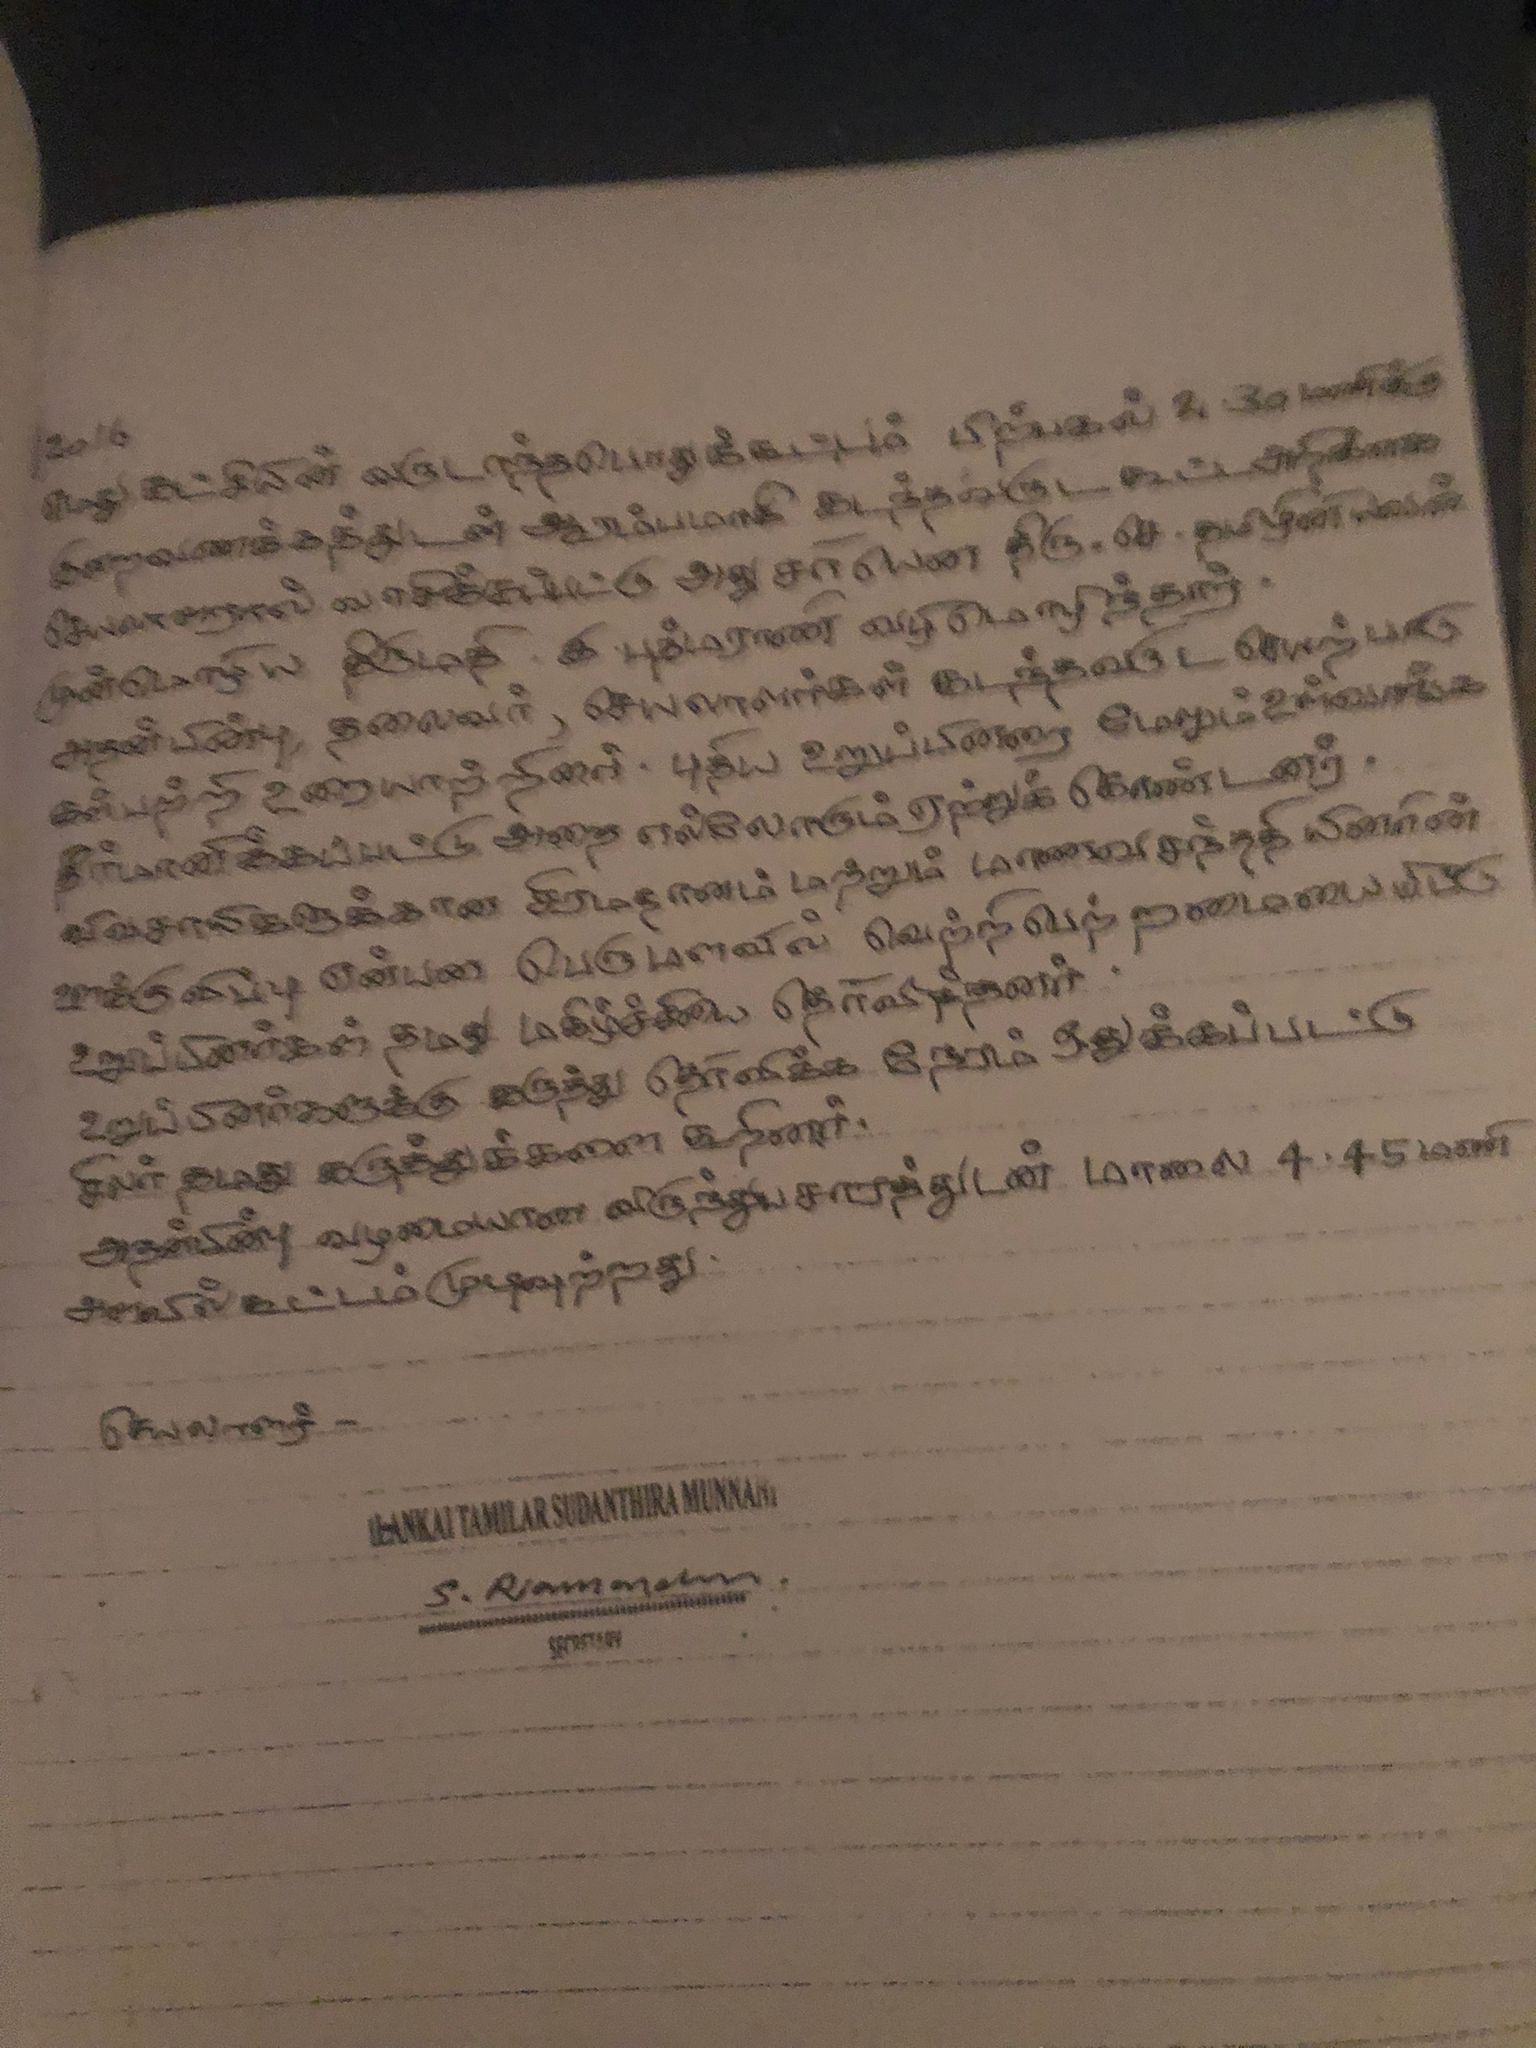 2016
எமது கட்சியின் வருடாந்த பொதுக்கூட்டம் பிற்பகல் 2.30 மணிக்கு
இறைவணக்கத்துடன் ஆரம்பமாகி கடந்தவருட கூட்டஅறிக்கை
செயலாளரால் வாசிக்கப்பட்டு அது சரியென திரு. செ. தமிழின்பன்
முன்மொழிய திருமதி. த. பத்மராணி வழிமொழிந்தார்.
அதன்பின்பு, தலைவர், செயலாளர்கள் கடந்தவருட செயற்பாடு
கள்பற்றி உரையாற்றினர். புதிய உறுப்பினரை மேலும் உள்வாங்க
தீர்மானிக்கப்பட்டு அதை எல்லோரும் ஏற்றுக் கொண்டனர்.
விவசாயிகளுக்கான சிரமதானம் மற்றும் மாணவ சந்ததியினரின்
ஊக்குவிப்பு என்பன பெருமளவில் வெற்றிபெற்றமையையிட்டு
உறுப்பினர்கள் தமது மகிழ்ச்சியை தெரிவித்தனர்.
உறுப்பினர்களுக்கு கருத்து தெரிவிக்க நேரம் ஒதுக்கப்பட்டு
சிலர் தமது கருத்துக்களை கூறினர்.
அதன்பின்பு வழமையான விருந்துபசாரத்துடன் மாலை 4.45 மணி
அளவில் கூட்டம் முடிவுற்றது.
செயலாளர் -
ILANKAI TAMILAR SUDANTHIRA MUNNANI
S.
SECRETARY